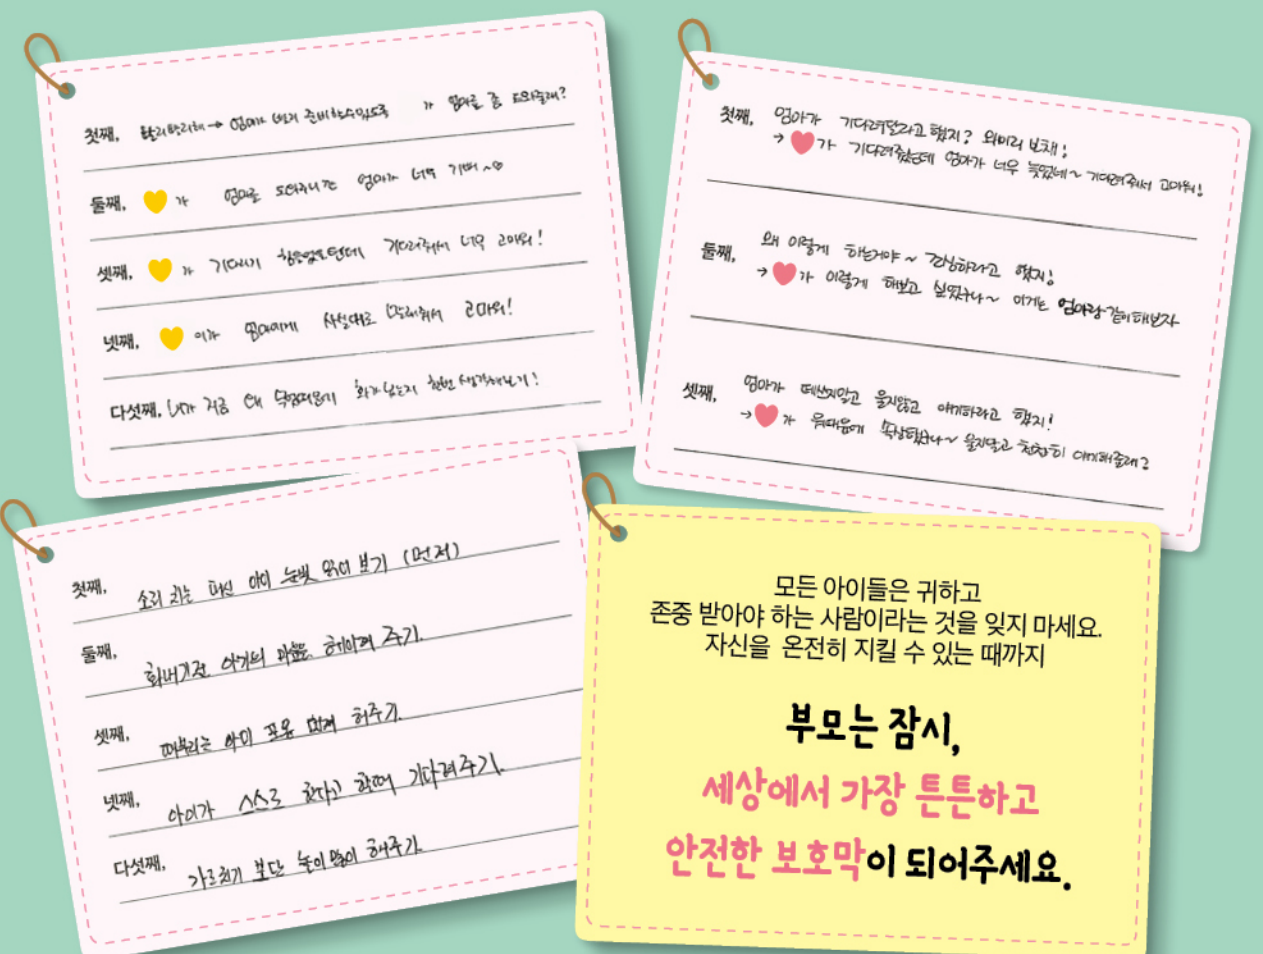 첫째, 빨리빨리해 → 엄마가 빨리 준비할수있도록 가 엄마를 좀 도와줄래?
둘째, 가 엄마를 도와주니깐 엄마가 너무 기뻐~
셋째, 가 기다리기 힘들었을텐데 기다려줘서 너무 고마워!
넷째, 이가 엄마에게 사실대로 말해줘서 고마워!
다섯째, 내가 지금 왜 무엇때문에 화가났는지 한번 생각해보기!
첫째, 엄마가 기다려달라고 했지? 왜이리 보채!
→ 가 기다려줬는데 엄마가 너무 늦었네~ 기다려줘서 고마워!
둘째, 왜 이렇게 하는거야~ 조심하라고 했지!
→ 가 이렇게 해보고 싶었구나~ 이거는 엄마랑 같이해보자
셋째, 엄마가 떼쓰지말고 울지말고 얘기하라고 했지!
→ 가 뭐때문에 속상했구나~ 울지말고 천천히 얘기해줄래?
첫째, 소리 치는 대신 아이 눈빛 읽어 보기 (먼저)
둘째, 화내기전 아기의 마음을 헤아려 주기.
셋째, 떼부리는 아이 포옹 먼저 해주기.
넷째, 아이가 스스로 한다고 할때 기다려주기.
다섯째, 가르치기 보단 놀이 많이 해주기.
모든 아이들은 귀하고
존중 받아야 하는 사람이라는 것을 잊지 마세요.
자신을 온전히 지킬 수 있는 때까지
부모는 잠시,
세상에서 가장 튼튼하고
안전한 보호막이 되어주세요.